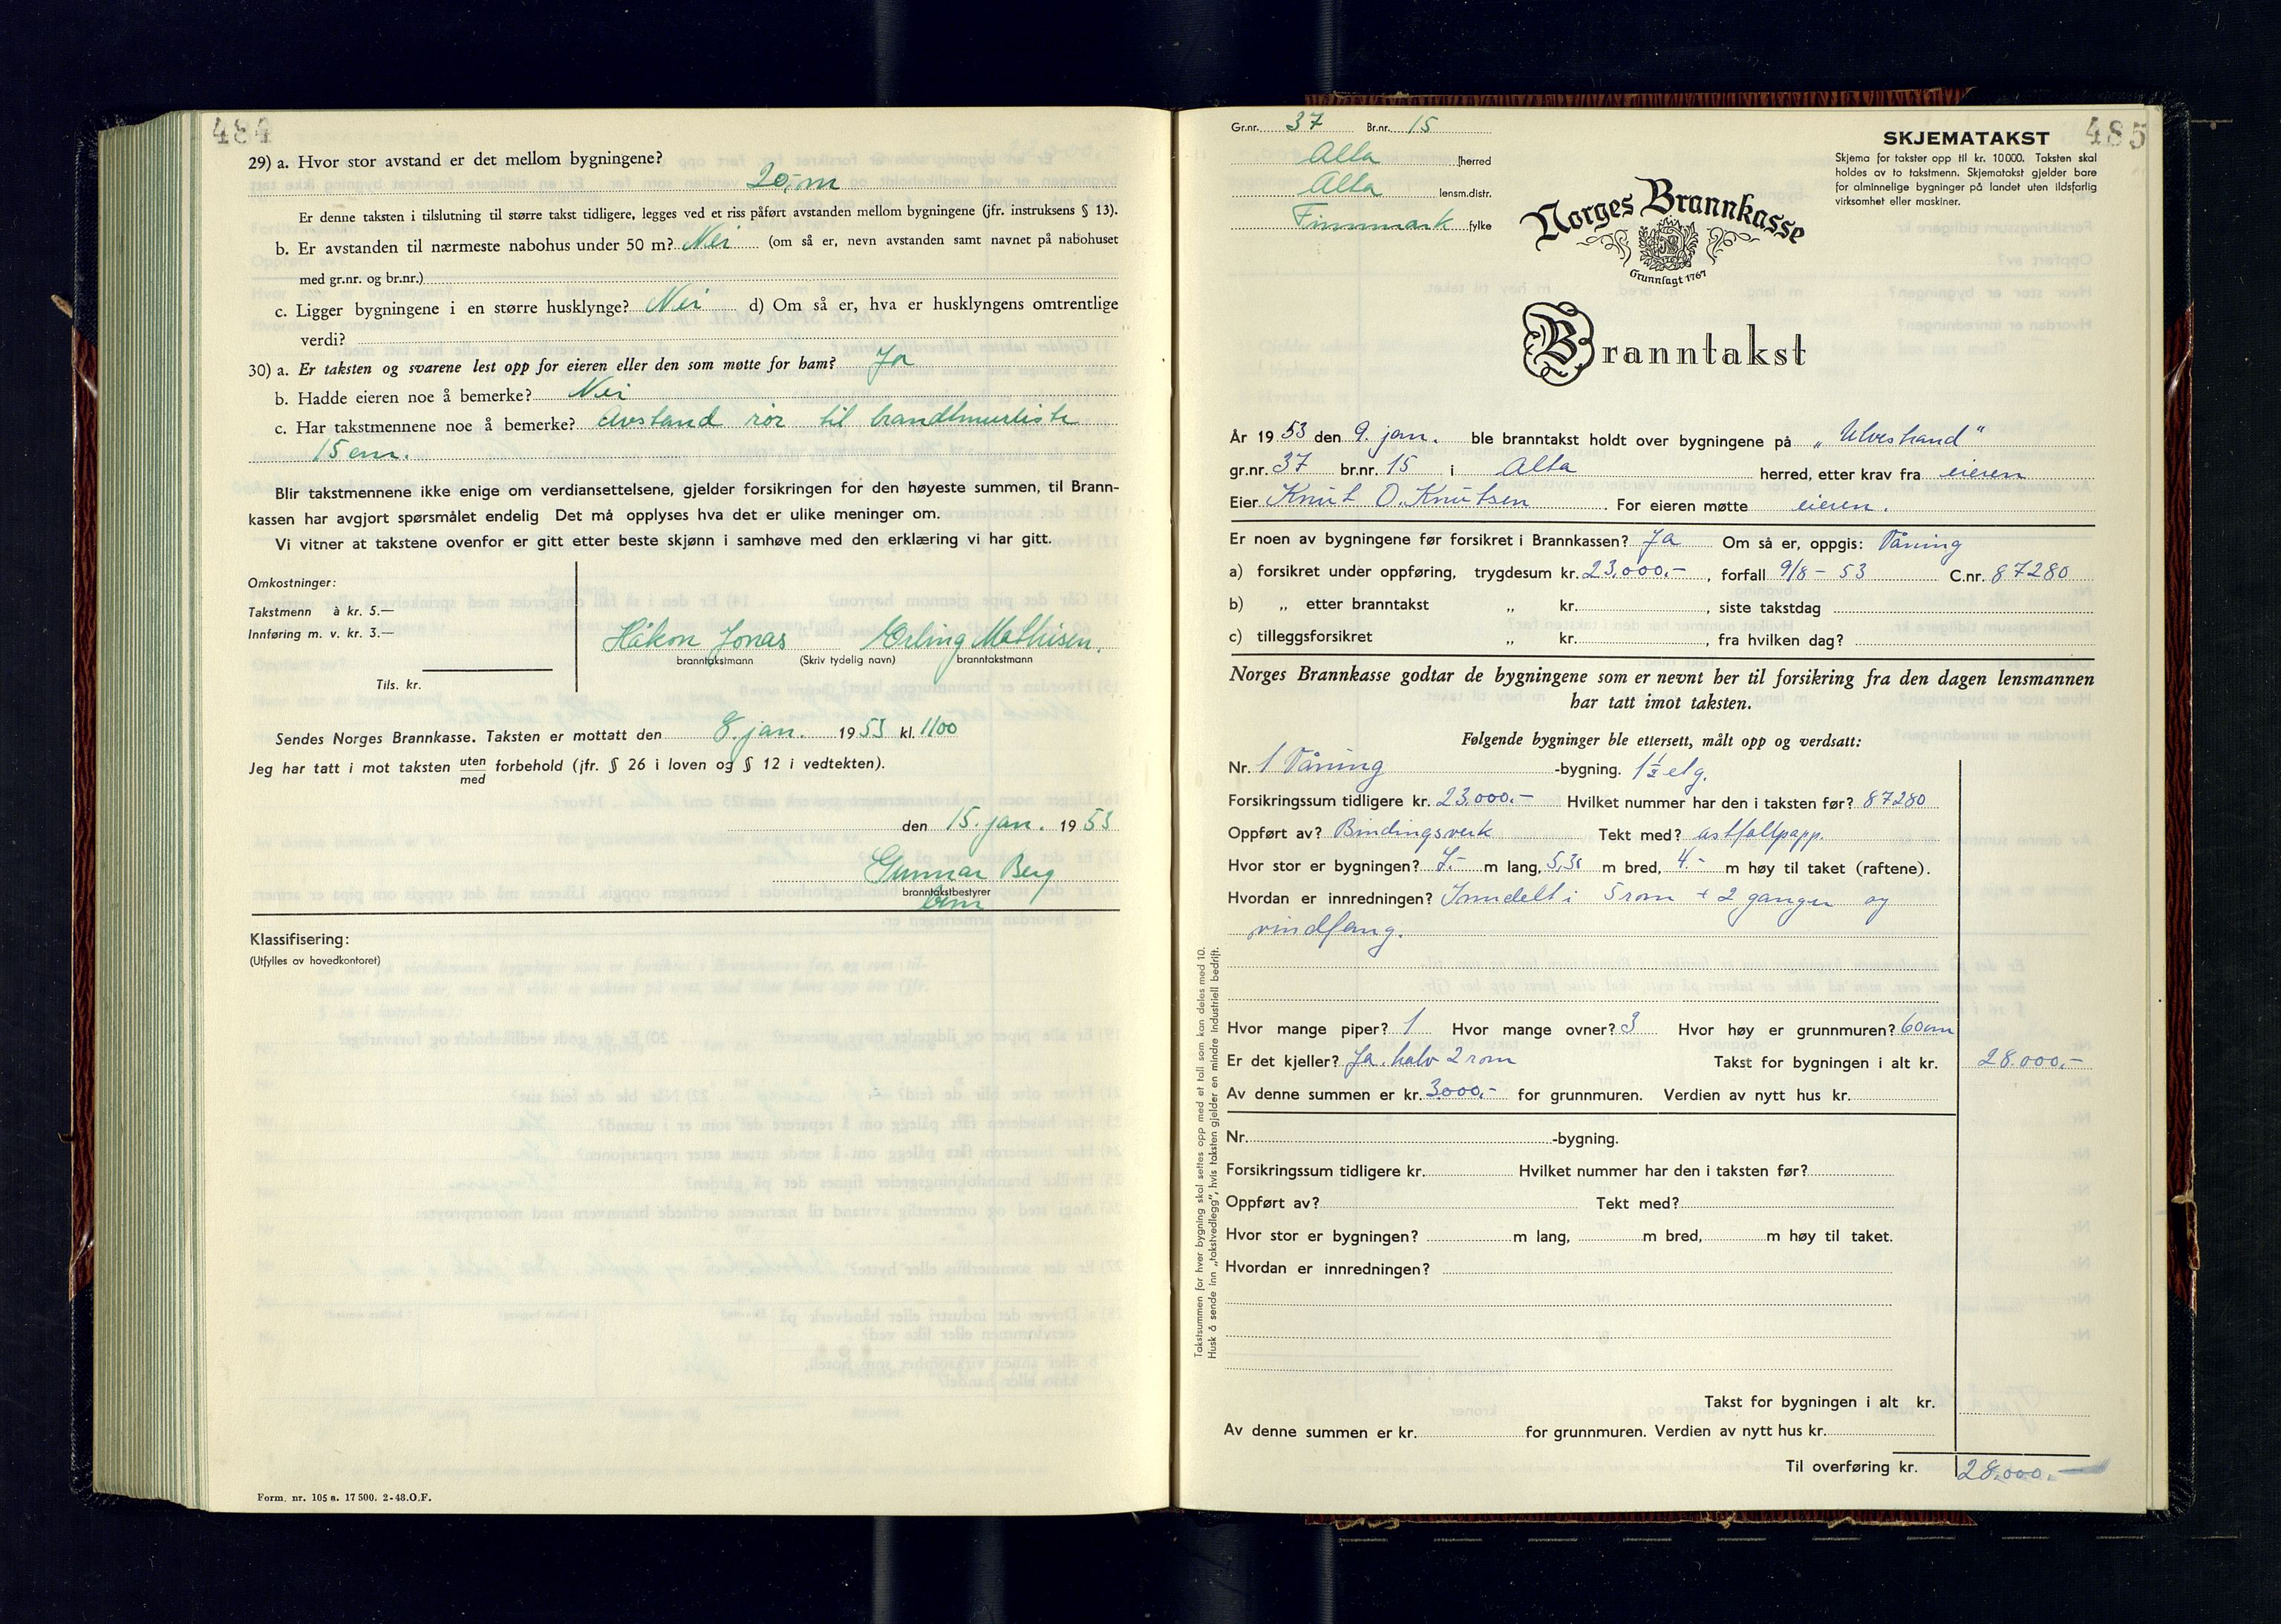 484
29) a. Hvor stor avstand er det mellom bygningene?
20,- m
Er denne taksten i tilslutning til større takst tidligere, legges ved et riss påført avstanden mellom bygningene (jfr. instruksens § 13).
b. Er avstanden til nærmeste nabohus under 50 m? Nei (om så er, nevn avstanden samt navnet på nabohuset
med gr.nr. og br.nr.)
c. Ligger bygningene i en større husklynge? Nei d) Om så er, hva er husklyngens omtrentlige
verdi?
30) a. Er taksten og svarene lest opp for eieren eller den som møtte for ham? Ja
b. Hadde eieren noe å bemerke? Nei
c. Har takstmennene noe å bemerke? Avstand rör til brandmurliste
15 cm.
Blir takstmennene ikke enige om verdiansettelsene, gjelder forsikringen for den høyeste summen, til Brann-
kassen har avgjort spørsmålet endelig Det må opplyses hva det er ulike meninger om.
Vi vitner at takstene ovenfor er gitt etter beste skjønn i samhøve med den erklæring vi har gitt.
Omkostninger:
Takstmenn à kr. 5.—
Innføring m. v. kr. 3.—
Tils. kr.
Håkon Jonas Erling Mathisen.
branntakstmann (Skriv tydelig navn) branntakstmann
Sendes Norges Brannkasse. Taksten er mottatt den 8. jan. 1953 kl. 1100
Jeg har tatt i mot taksten uten/med forbehold (jfr. § 26 i loven og § 12 i vedtekten).
den 15. jan. 1953
Gunnar Berg
branntakstbestyrer
Klassifisering:
(Utfylles av hovedkontoret)
Form. nr. 105 a. 17 500. 2-48. O.F.
485
Gr.nr. 37 Br.nr. 15
Alta herred
Alta lensm.distr.
Finnmark fylke
SKJEMATAKST
Skjema for takster opp til kr. 10 000. Taksten skal
holdes av to takstmenn. Skjematakst gjelder bare
for alminnelige bygninger på landet uten ildsfarlig
virksomhet eller maskiner.
Norges Brannkasse
Grunnlagt 1767
Branntakst
År 1953 den 9. jan. ble branntakst holdt over bygningene på „Ulvestrand"
gr.nr. 37 br.nr. 15 i Alta herred, etter krav fra eieren
Eier Knut O. Knutsen. For eieren møtte eieren.
Er noen av bygningene før forsikret i Brannkassen? Ja Om så er, oppgis: Våning
a) forsikret under oppføring, trygdesum kr. 23.000.-, forfall 9/8 - 53 C.nr. 87280
b) „ etter branntakst „ kr. , siste takstdag
c) tilleggsforsikret „ kr. , fra hvilken dag?
Norges Brannkasse godtar de bygningene som er nevnt her til forsikring fra den dagen lensmannen
har tatt imot taksten.
Følgende bygninger ble ettersett, målt opp og verdsatt:
Nr. 1 Våning -bygning. 1 ½ etg.
Forsikringssum tidligere kr. 23.000.- Hvilket nummer har den i taksten før? 87280
Oppført av? Bindingsverk Tekt med? astfaltpapp.
Hvor stor er bygningen? 7.- m lang, 5,35 m bred, 4.- m høy til taket (raftene).
Hvordan er innredningen? Inndelt i 5 rom + 2 ganger og
vindfang.
Hvor mange piper? 1 Hvor mange ovner? 3 Hvor høy er grunnmuren? 60cm
Er det kjeller? Ja. halv 2 rom Takst for bygningen i alt kr. 28.000,-
Av denne summen er kr. 3000,- for grunnmuren. Verdien av nytt hus kr.
Nr. -bygning.
Forsikringssum tidligere kr. Hvilket nummer har den i taksten før?
Oppført av? Tekt med?
Hvor stor er bygningen? m lang, m bred, m høy til taket.
Hvordan er innredningen?
Takst for bygningen i alt kr.
Av denne summen er kr. for grunnmuren. Verdien av nytt hus kr.
Til overføring kr. 28.000.-
Takstsummen for hver bygning skal settes opp med et tall som kan deles med 10.
Husk å sende inn „takstvedlegg", hvis taksten gjelder en mindre industriell bedrift.